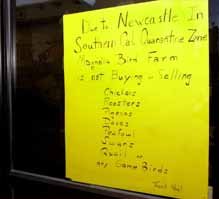 Due to Newcastle In
Southern Cal Quarantine Zone
Magnolia Bird Farm
is not Buying or Selling
Chickens
Roosters
Doves
Peafowl
Swans
Quail or
any Game Birds
Thank You!